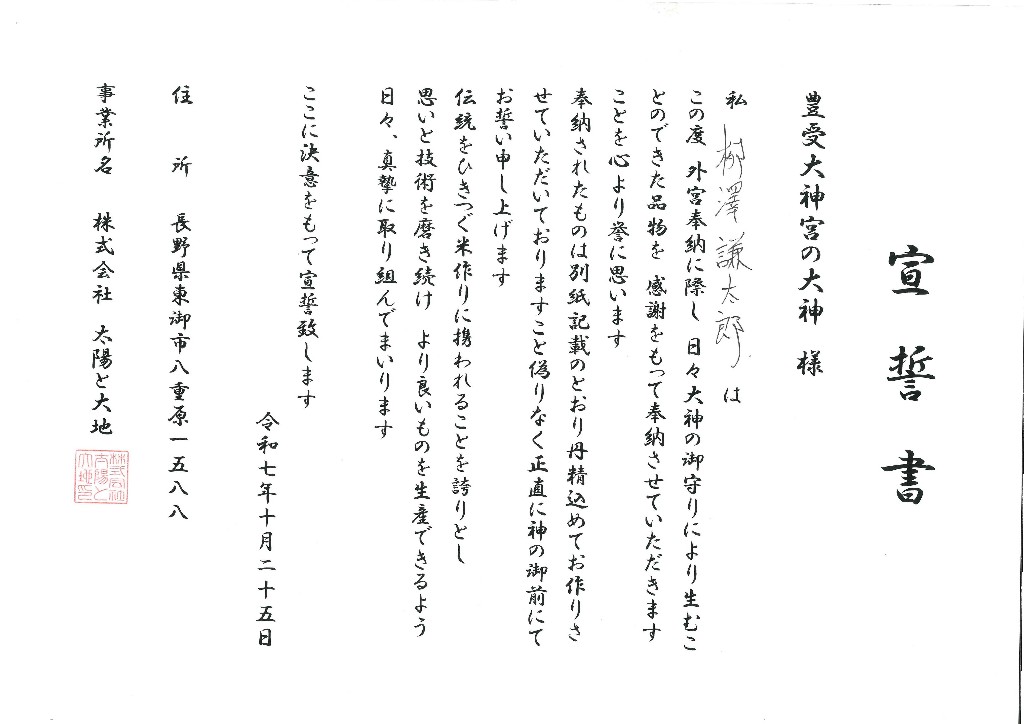 宣誓書
豊受大神宮の大神 様
私 柳澤謙太郎 は
この度 外宮奉納に際し 日々大神の御守りにより生むこ
とのできた品物を 感謝をもって奉納させていただきます
ことを心より誉に思います
奉納されたものは別紙記載のとおり丹精込めてお作りさ
せていただいておりますこと偽りなく正直に神の御前にて
お誓い申し上げます
伝統をひきつぐ米作りに携われることを誇りとし
思いと技術を磨き続け より良いものを生産できるよう
日々、真摯に取り組んでまいります
ここに決意をもって宣誓致します
令和七年十月二十五日
住 所 長野県東御市八重原一五八八
事業所名 株式会社 太陽と大地
株式会社
太陽と
大地印